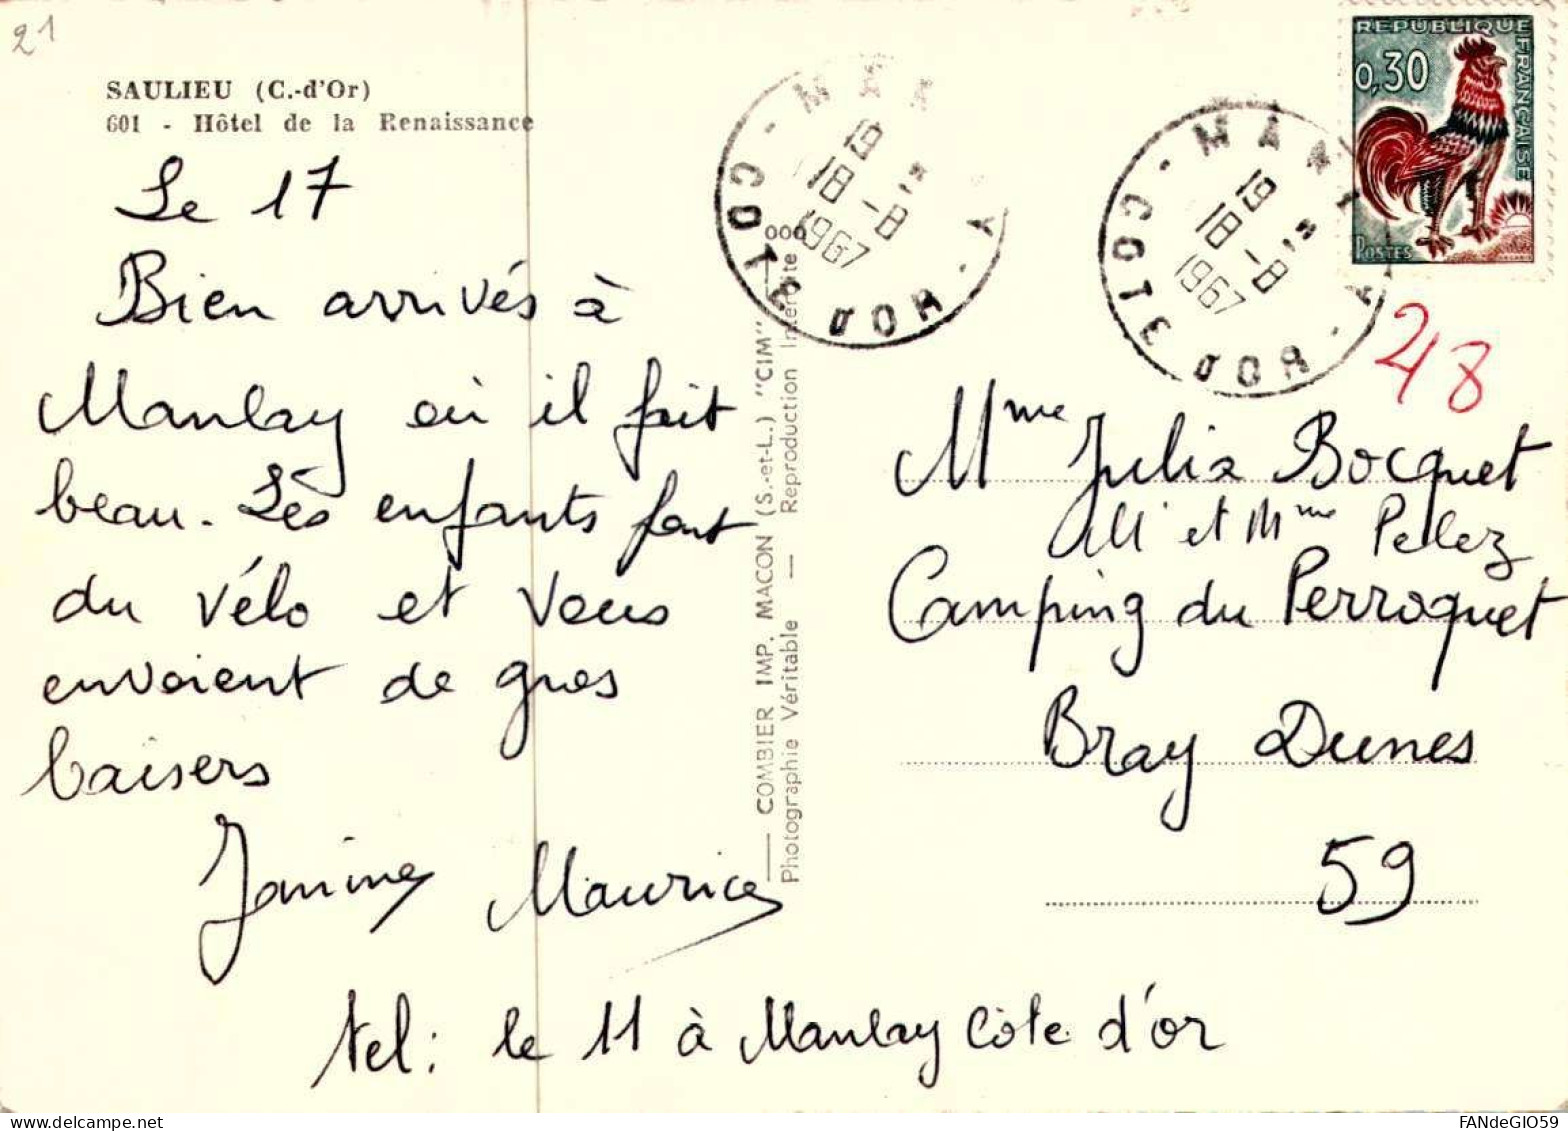 21
SAULIEU (C.-d'Or)
601 - Hôtel de la Renaissance
Le 17
Bien arrivés à
Manlay où il fait
beau. Les enfants font
du vélo et vous
envoient de gros
baisers
Janine Maurice
tel: le 11 à Manlay Côte d'or
COMBIER IMP. MACON (S.-et-L.) "CIM"
Photographie Véritable — Reproduction Interdite
MANLAY
19 H
18-8
1967
COTE D'OR
MANLAY
19 H
18-8
1967
COTE D'OR
REPUBLIQUE FRANÇAISE
0,30
POSTES
48
Mme Julia Bocquet
M et Mme Pelez
Camping du Perroquet
Bray Dunes
59
delcampe.net
FANdeGIO59